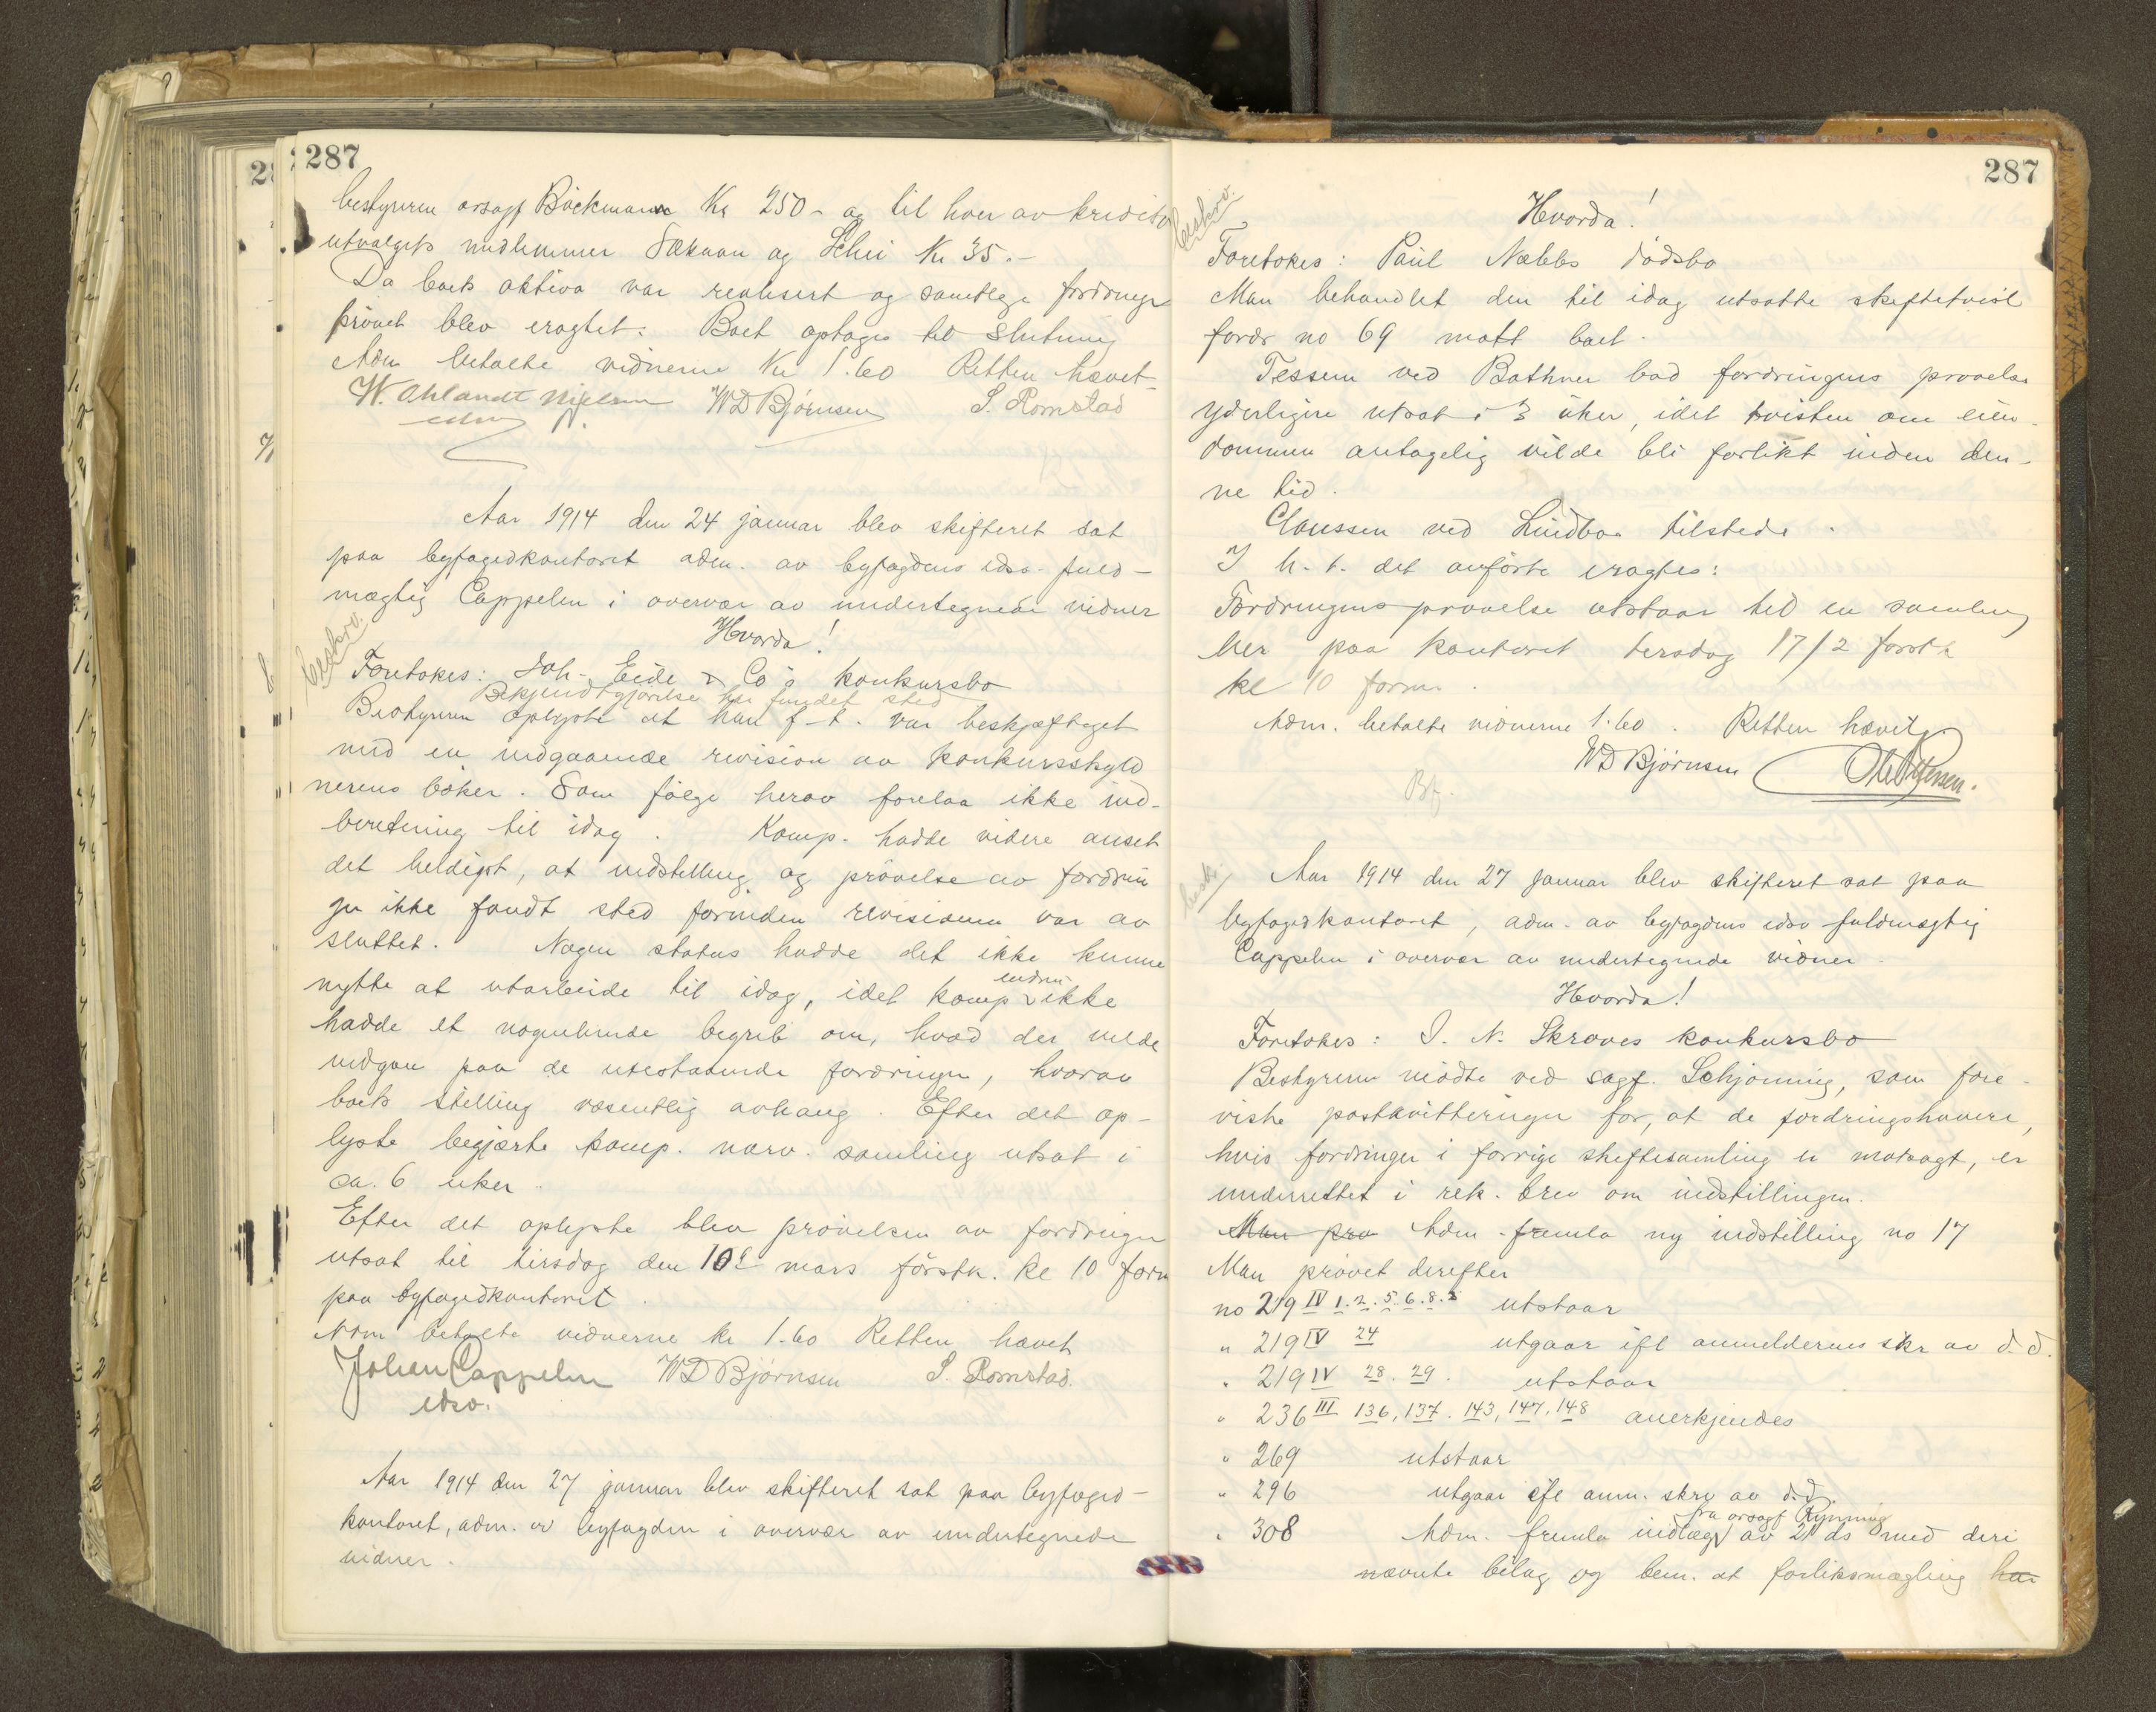 287
bestyreren orsagf Böckmann Kr 250 - og til hver av kreditor
utvalgets medlemmer Sæhaan og Schei Kr 35.-
Da boets aktiva var realisert og samtlige fordringer
prövet blev eragtet: Boet optages til slutning
Adm betalte vidnerne Kr 1.60 Retten hævet
W. Ohlandt Nielsen WDBjørnsen S. Romstad
Aar 1914 den 24 januar blev skifteret sat
paa byfogedkontoret adm. av byfogdens edsv. fuld-
mægtig Cappelen i overvær av undertegnede vidner
Hvorda!
beskrv.
Foretokes: Joh. Eide & Co's konkursbo
Bekjendtgjörelse har fundet sted
Bestyreren oplyste at han f.t. var beskjæftiget
med en indgaaende revision av konkursskyld
nerens böker. Som fölge herav forelaa ikke ind-
beretning til idag. Komp. hadde videre anset
det heldigst, at indstilling og prövelse av fordrin
ger ikke fandt sted forinden revisionen var av
sluttet. Nogen status hadde det ikke kunne
nytte at utarbeide til idag, idet komp endnu ikke
hadde et nogenlunde begreb om, hvad der vilde
indgaa paa de utestaaende fordringer, hvorav
boets stilling væsentlig avhang. Efter det op-
lyste begjærte komp. nærv. samling utsat i
ca. 6 uker.
Efter det oplyste blev prövelsen av fordringer
utsat til tirsdag den 10de mars förstk. kl 10 form
paa byfogedkontoret.
Adm betalte vidnerne kr 1.60 Retten hævet
Johan Cappelen WDBjørnsen S. Romstad.
edsv.
Aar 1914 den 27 januar blev skifteret sat paa byfoged-
kontoret, adm. av byfogden i overvær av undertegnede
vidner.
287
Hvorda!
beskrv.
Foretokes: Paul Næbbs dödsbo
Man behandlet den til idag utsatte skiftetvist
fordr no 69 mott boet.
Tessem ved Bathner bad fordringens prövelse
yderligere utsat i 3 uker, idet tvisten om eien-
dommen antagelig vilde bli forlikt inden den-
ne tid.
Claussen ved Lindboe tilstede.
I h. t. det anförte eragtes:
Fordringens prövelse utstaar til en samling
her paa kontoret tirsdag 17/2 förstk
kl 10 form.
Adm. betalte vidnerne 1.60. Retten hævet
WDBjørnsen
Aar 1914 den 27 januar blev skifteret sat paa
byfogedkontoret, adm. av byfogdens edsv fuldmægtig
Cappelen i overvær av undertegnede vidner.
Hvorda!
Foretokes: I. N. Skroves konkursbo
Bestyreren mödte ved sagf. Schjönning, som fore-
viste postkvitteringer for, at de fordringshavere,
hvis fordringer i forrige skiftesamling er motsagt, er
underrettet i rek. brev om indstillingen.
Man prö Adm. fremla ny indstilling no 17
Man prövet derefter
no 219 IV 1. 2. 5. 6. 8. utstaar
" 219 IV 24 utgaar ifl anmeldernes skr av d.d.
" 219 IV 28. 29. utstaar
" 236 III 136, 137. 143, 147. 148 anerkjendes
" 269 utstaar
" 296 utgaar ifl anm. skrv av d.d.
fra orsagf Rynning
" 308 Adm. fremla indlæg av 21 ds med deri
nævnte bilag og bem. at forliksmægling har